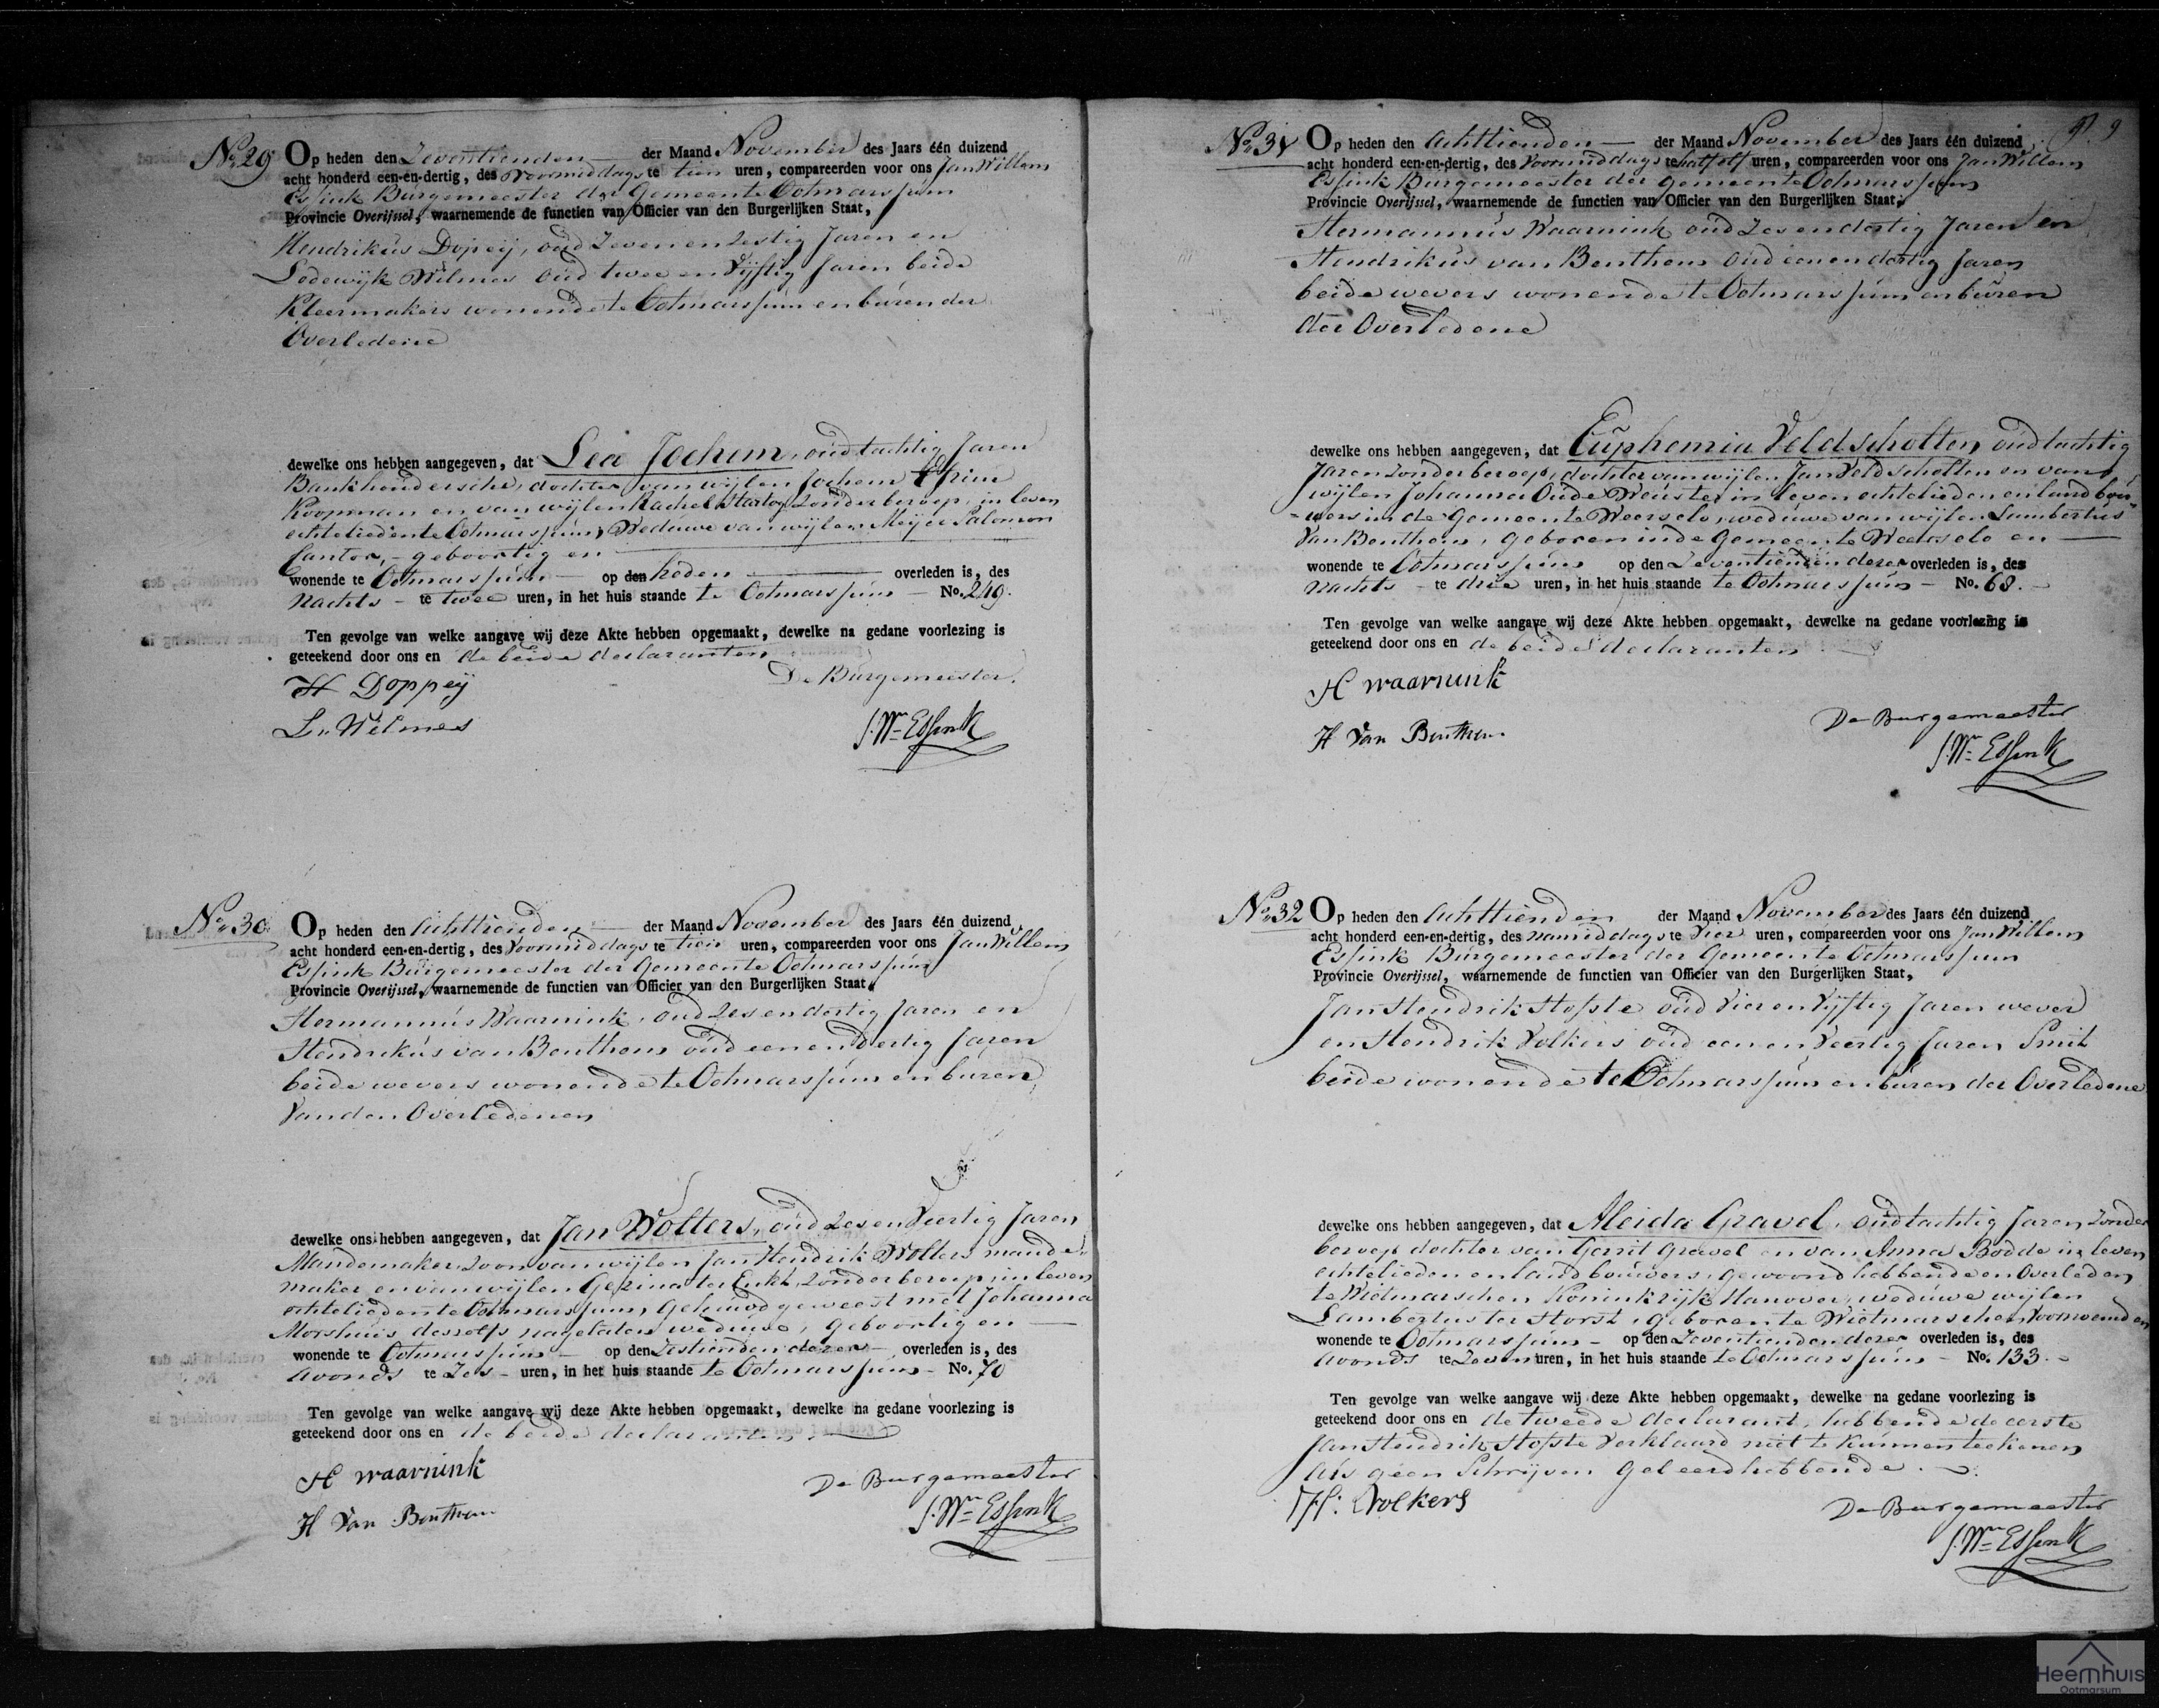 No. 29 Op heden den Zeventienden der Maand November des Jaars één duizend
acht honderd een-en-dertig, des voormiddags te tien uren, compareerden voor ons Jan Willem
Essink Burgemeester der Gemeente Ootmarssum
Provincie Overijssel, waarnemende de functien van Officier van den Burgerlijken Staat,
Hendrikus Doppeij, oud Zeven en Zestig Jaren en
Lodewijk Wilmes oud twee en Vijftig Jaren beide
Kleermakers wonende te Ootmarssum en buren der
Overledene
dewelke ons hebben aangegeven, dat Lea Jochem, oud tachtig Jaren
Bankhoudersche, dochter van wijlen Jochem
Koopman en van wijlen Rachel Hartog Zonder beroep, in leven
echtelieden te Ootmarssum, Weduwe van wijlen Meijer Salomon
Cantor, - geboortig en
wonende te Ootmarssum - op den heden overleden is, des
Nachts - te twee uren, in het huis staande te Ootmarssum - No. 249.
Ten gevolge van welke aangave wij deze Akte hebben opgemaakt, dewelke na gedane voorlezing is
geteekend door ons en de beide declaranten
H Doppeij
De Burgemeester.
L. Wilmes
J. Wm Essink
No. 30 Op heden den Achttienden der Maand November des Jaars één duizend
acht honderd een-en-dertig, des Voormiddags te tien uren, compareerden voor ons Jan Willem
Essink Burgemeester der Gemeente Ootmarssum
Provincie Overijssel, waarnemende de functien van Officier van den Burgerlijken Staat,
Hermannus Waarnink, oud Zes en dertig Jaren en
Hendrikus van Benthem oud een en dertig Jaren
beide wevers wonende te Ootmarssum en buren
Van den Overledenen
dewelke ons hebben aangegeven, dat Jan Wolters, oud Zes en Veertig Jaren
Mandemaker, Zoon van wijlen Jan Hendrik Wolters mande-
maker en van wijlen Gezina ter Zonder beroep, in leven
echtelieden te Ootmarssum, Gehuwd geweest met Johanna
Morshuis deszelfs nagelaten weduwe, geboortig en
wonende te Ootmarssum - op den Zestienden dezer - overleden is, des
Avonds te Zes - uren, in het huis staande te Ootmarssum - No. 70
Ten gevolge van welke aangave wij deze Akte hebben opgemaakt, dewelke na gedane voorlezing is
geteekend door ons en de beide declaranten.
H waarnink
De Burgemeester
H Van Benthem
J. Wm Essink
No. 31 Op heden den Achttienden der Maand November des Jaars één duizend
acht honderd een-en-dertig, des Voormiddags te half elf uren, compareerden voor ons Jan Willem
Essink Burgemeester der gemeente Ootmarssum
Provincie Overijssel, waarnemende de functien van Officier van den Burgerlijken Staat,
Hermannus Waarnink oud Zes en dertig Jaren en
Hendrikus van Benthem Oud een en dertig Jaren
beide wevers wonende te Ootmarssum en buren
der Overledene
dewelke ons hebben aangegeven, dat Euphemia Veldscholten, oud tachtig
Jaren Zonder beroep, dochter van wijlen Jan Veldscholten en van
wijlen Johanna Oude in leven echtelieden en landbou-
-wers in de Gemeente Weerselo, weduwe van wijlen Lambertus
Van Benthem, Geboren in de Gemeente Weerselo en
wonende te Ootmarssum op den Zeventienden dezer overleden is, des
nachts - te drie uren, in het huis staande te Ootmarssum - No. 68.
Ten gevolge van welke aangave wij deze Akte hebben opgemaakt, dewelke na gedane voorlezing is
geteekend door ons en de beide declaranten
H waarnink
De Burgemeester
H Van Benthem
J. Wm Essink
No. 32 Op heden den Achttienden der Maand November des Jaars één duizend
acht honderd een-en-dertig, des namiddags te Vier uren, compareerden voor ons Jan Willem
Essink Burgemeester der Gemeente Ootmarssum
Provincie Overijssel, waarnemende de functien van Officier van den Burgerlijken Staat,
Jan Hendrik Hofste oud Vier en Vijftig Jaren wever
en Hendrik Volkers oud een en Veertig Jaren Smit
beide wonende te Ootmarssum en buren der Overledene
dewelke ons hebben aangegeven, dat Aleida Gravel, oud tachtig Jaren, Zonder
beroep dochter van Gerrit Gravel en van Anna Bodde in leven
echtelieden en landbouwers, gewoond hebbende en Overleden
te Wietmarschen Koninkrijk Hanover, weduwe wijlen
Lambertus ter Horst, geboren te Wietmarschen Voornoemd en
wonende te Ootmarssum - op den Zeventienden dezer overleden is, des
Avonds te Zeven uren, in het huis staande te Ootmarssum - No. 133.
Ten gevolge van welke aangave wij deze Akte hebben opgemaakt, dewelke na gedane voorlezing is
geteekend door ons en de tweede declarant, hebbende de eerste
Jan Hendrik Hofste Verklaard niet te kunnen teekenen
als geen Schrijven Geleerd hebbende.
H: Volkers
De Burgemeester
J. Wm Essink
Heemhuis
Ootmarsum